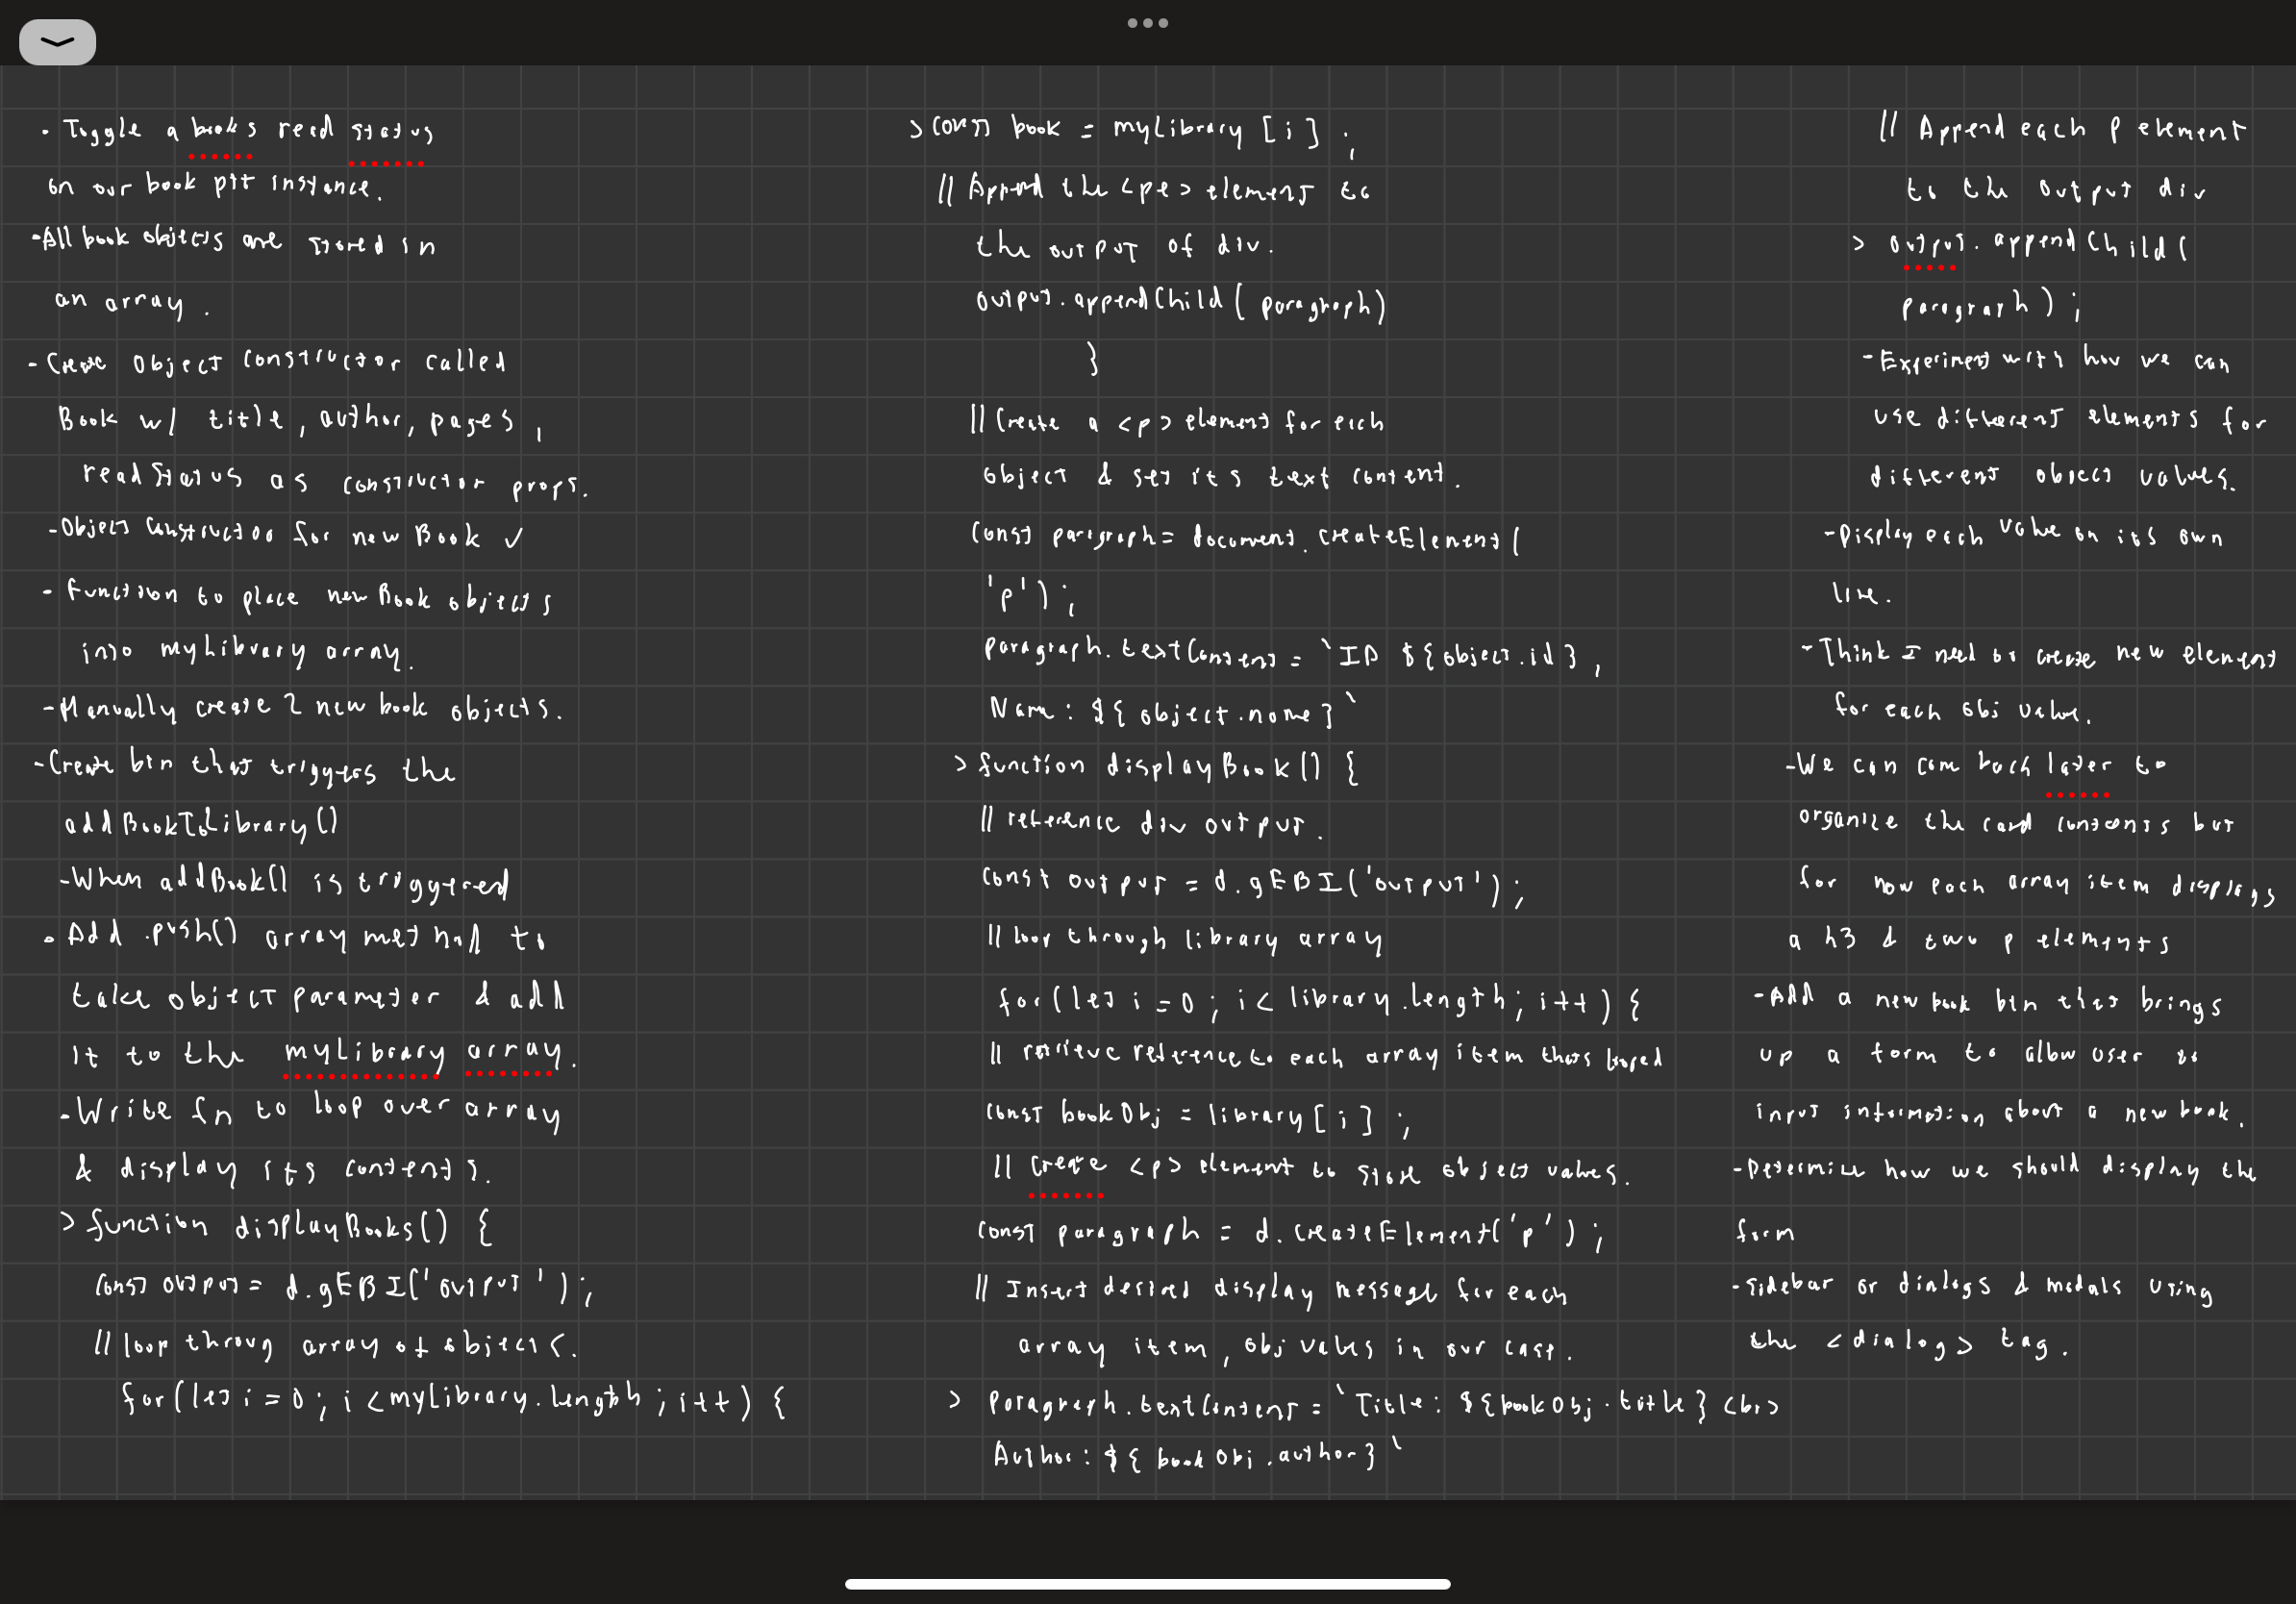 - Toggle a books read status
on our book ptt instance.
-All book objects are stored in
an array.
- Create Object Constructor called
Book w/ title, author, pages,
readStatus as constructor props.
-Object Constructor for new Book ✓
- Function to place new Book objects
into myLibrary array.
-Manually create 2 new book objects.
-Create btn that triggers the
addBookToLibrary()
-When addBook() is triggered
- Add .push() array method to
take object parameter & add
it to the myLibrary array.
-Write fn to loop over array
& display its contents.
> function displayBooks() {
const output = d.gEBI('output');
// loop throug array of objects.
for(let i = 0; i < myLibrary.length; i++) {
> const book = myLibrary [i];
// Append the <pe> element to
the output of div.
output.appendChild( paragraph)
}
// Create a <p> element for each
object & set its text content.
const paragraph = document.createElement(
'p');
paragraph.textContent = `ID ${object.id},
Name: ${object.name}`
> function displayBook() {
// reference div output.
const output = d.gEBI('output');
// loop through library array
for(let i = 0; i < library.length; i++) {
// retrieve reference to each array item thats looped
const bookObj = library[i];
// Create <p> element to store object values.
const paragraph = d.createElement('p');
// Insert desired display message for each
array item, obj values in our case.
> Paragraph.textContent = `Title: ${bookObj.title} <br>
Author: ${bookObj.author}`
// Append each p element
to the output div
> output.appendChild(
paragraph);
-Experiment with how we can
use different elements for
different object values.
-Display each value on its own
line.
-Think I need to create new element
for each obj value.
-We can com back later to
organize the card contents but
for now each array item displays
a h3 & two p elements
-Add a new book btn that brings
up a form to allow user to
input information about a new book.
-Determine how we should display the
form
-sidebar or dialogs & modals using
the <dialog> tag.